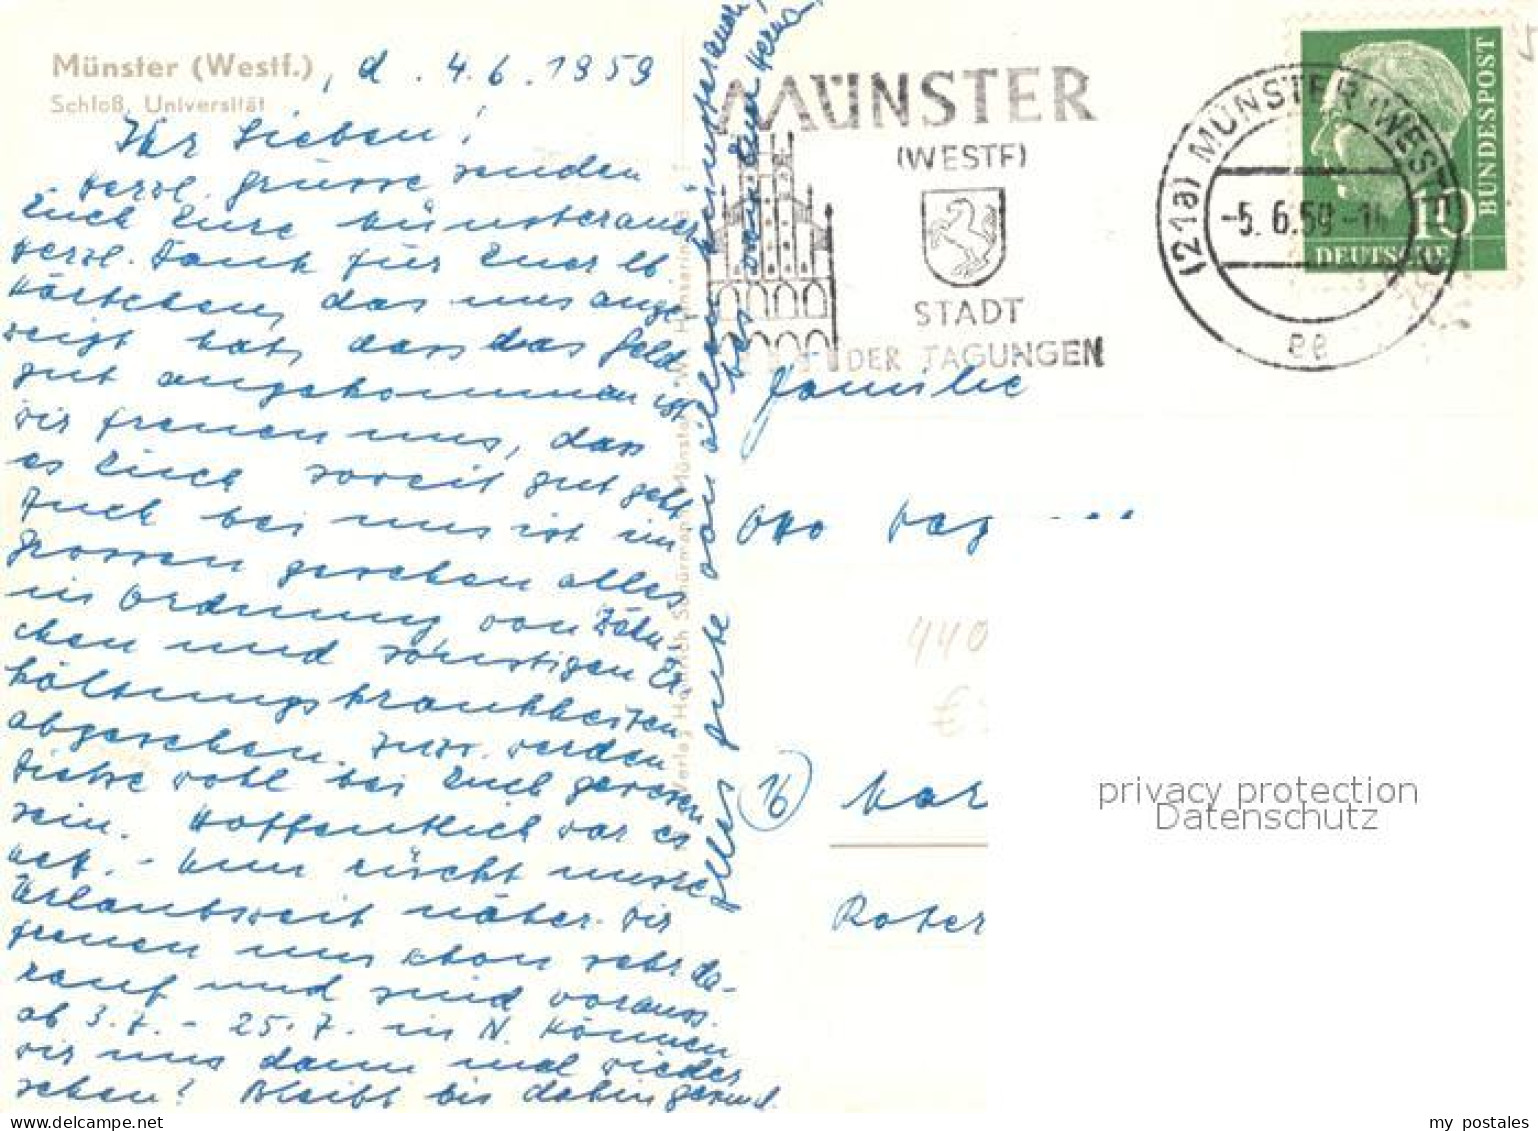 Münster (Westf.), d. 4.6.1959
Schloß, Universität
Ihr Lieben!
Herzl. Grüsse senden
Euch Eure Münsteraner
Herzl. Dank für Euer lb
Kärtchen, das uns ange-
zeigt hat, dass das Geld
gut angekommen ist
Wir freuen uns, dass
es Euch soweit gut geht
Auch bei uns ist im
Grossen gesehen alles
in Ordnung von Zähn-
chen und sonstigen Er-
kältungskrankheiten
abgesehen. Inzw. werden
wohl bei Euch gewesen
sein. Hoffentlich war es
nett. - Nun rückt unsere
Urlaubszeit näher. Wir
freuen uns schon sehr da-
rauf und sind vorauss.
ab 3.7. - 25.7. in N. Können
wir uns dann mal wieder
sehen? Bleibt bis dahin gesund.
Alles Gute von allen Münsteranern
Verlag Heinrich Schürmann, Münster i. W., Hansaring
MÜNSTER
(WESTF)
STADT
DER TAGUNGEN
(21a) MÜNSTER (WESTF)
-5.6.59-14
ee
10
DEUTSCHE
BUNDESPOST
Familie
Otto
440
€
(16) Mar
Roter
privacy protection
Datenschutz
my postales